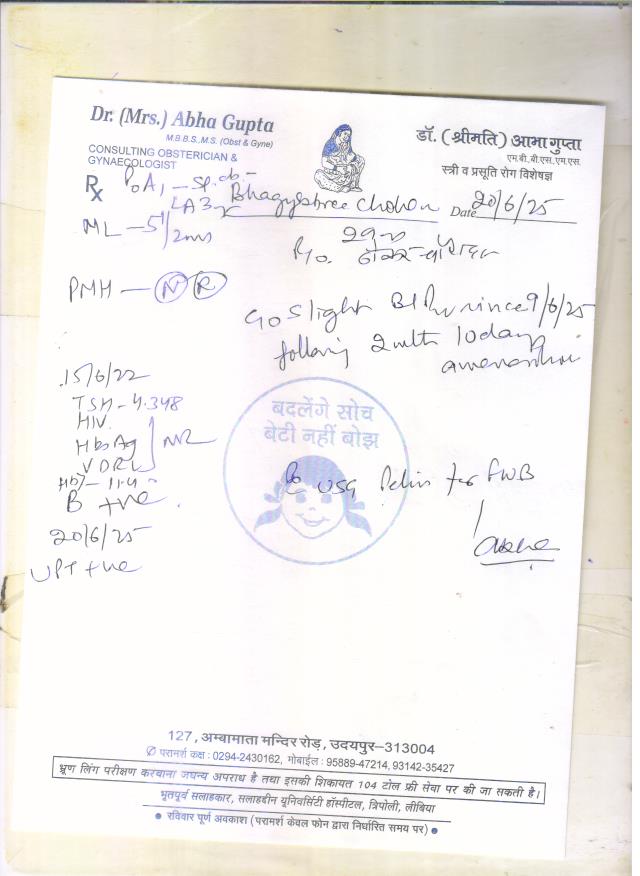 Dr. (Mrs.) Abha Gupta
M.B.B.S.,M.S. (Obst & Gyne)
CONSULTING OBSTERICIAN &
GYNAECOLOGIST
डॉ. (श्रीमति) आभा गुप्ता
एम.बी.बी.एस.,एम.एस.
स्त्री व प्रसूति रोग विशेषज्ञ
Rx P0A1 – sp. ab –
LA 3
Bhagyshree Chohan Date 20/6/25
ML – 5
29
PMH – N R
c/o slight Bl P/v since 9/6/25
following 2 mth 10 days
15/6/22
TSH – 4.348
HIV
HbsAg
VDRL
NR
Hb – 11.4
B +ve
20/6/25
UPT +ve
बदलेंगे सोच
बेटी नहीं बोझ
USG Pelvis for FWB
127, अम्बामाता मन्दिर रोड़, उदयपुर–313004
✆ परामर्श कक्ष : 0294-2430162, मोबाईल : 95889-47214, 93142-35427
भ्रूण लिंग परीक्षण करवाना जघन्य अपराध है तथा इसकी शिकायत 104 टोल फ्री सेवा पर की जा सकती है।
भूतपूर्व सलाहकार, सलाहदीन यूनिवर्सिटी हॉस्पीटल, त्रिपोली, लीबिया
• रविवार पूर्ण अवकाश (परामर्श केवल फोन द्वारा निर्धारित समय पर) •